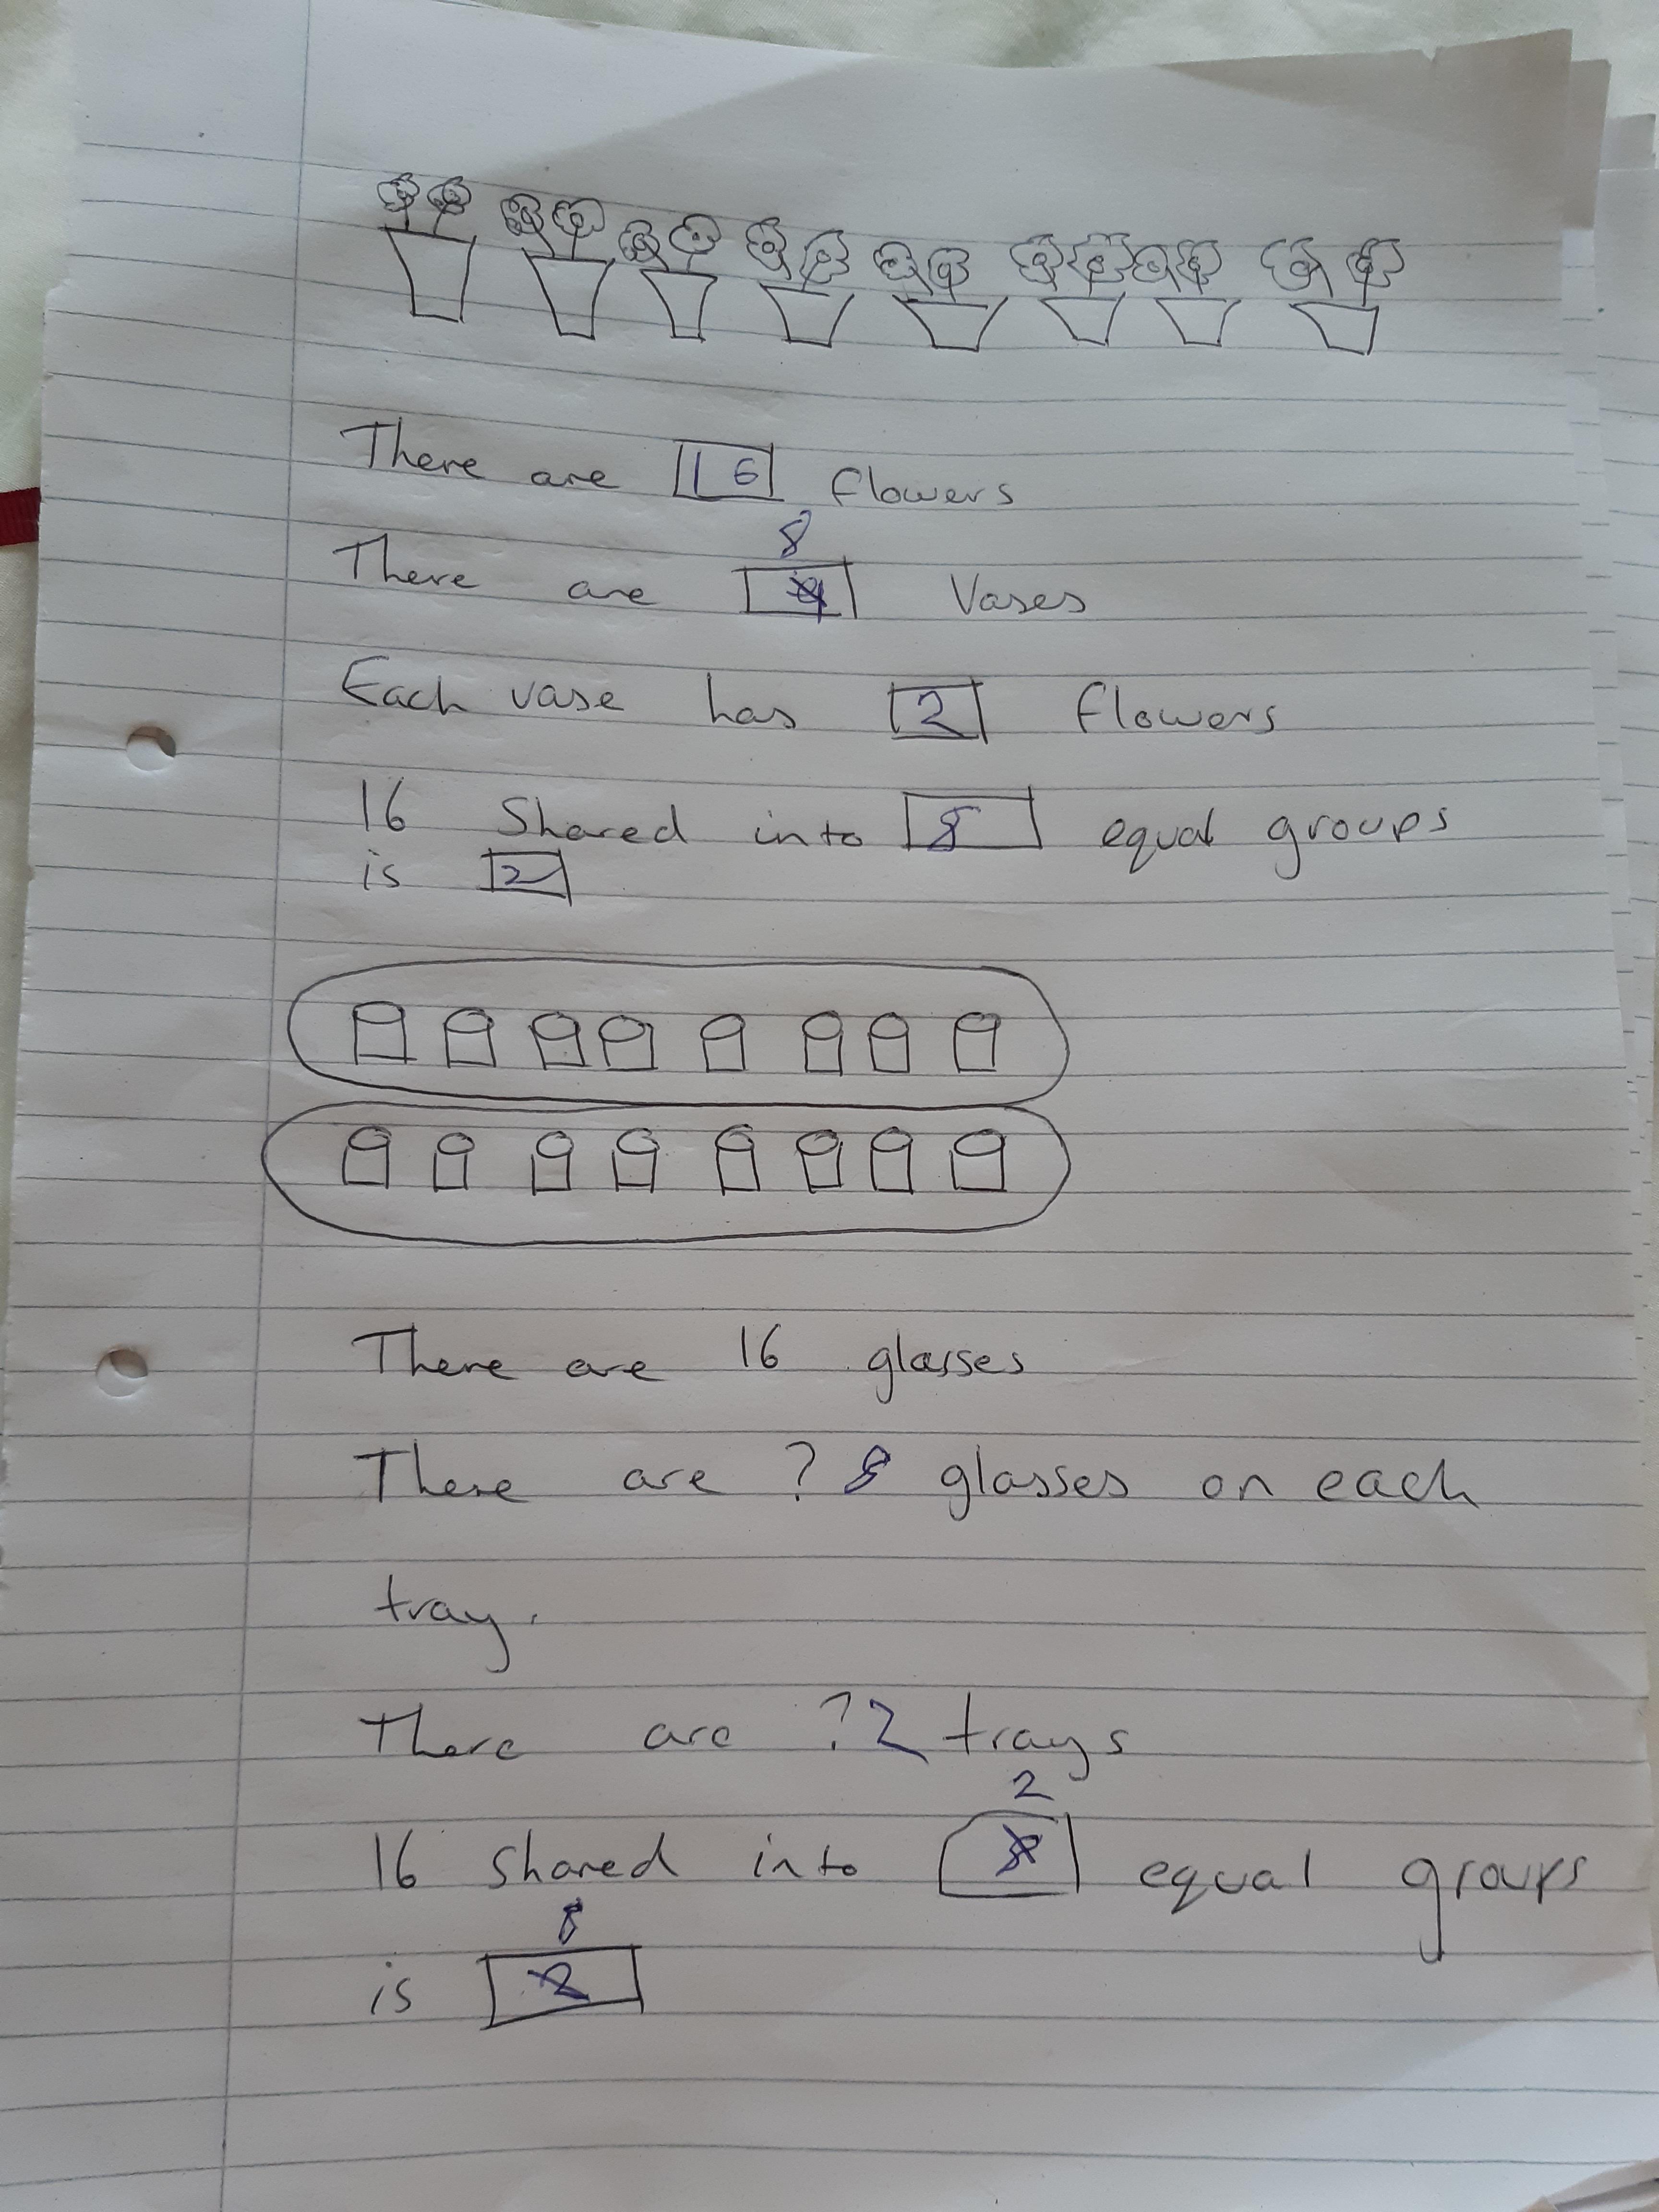 There are 16 flowers
8
There are Vases
Each vase has 2 flowers
16 Shared into 8 equal groups
is 2
There are 16 glasses
There are ? 8 glasses on each
tray.
There are ? 2 trays
2
16 shared into 8 equal groups
8
is 2